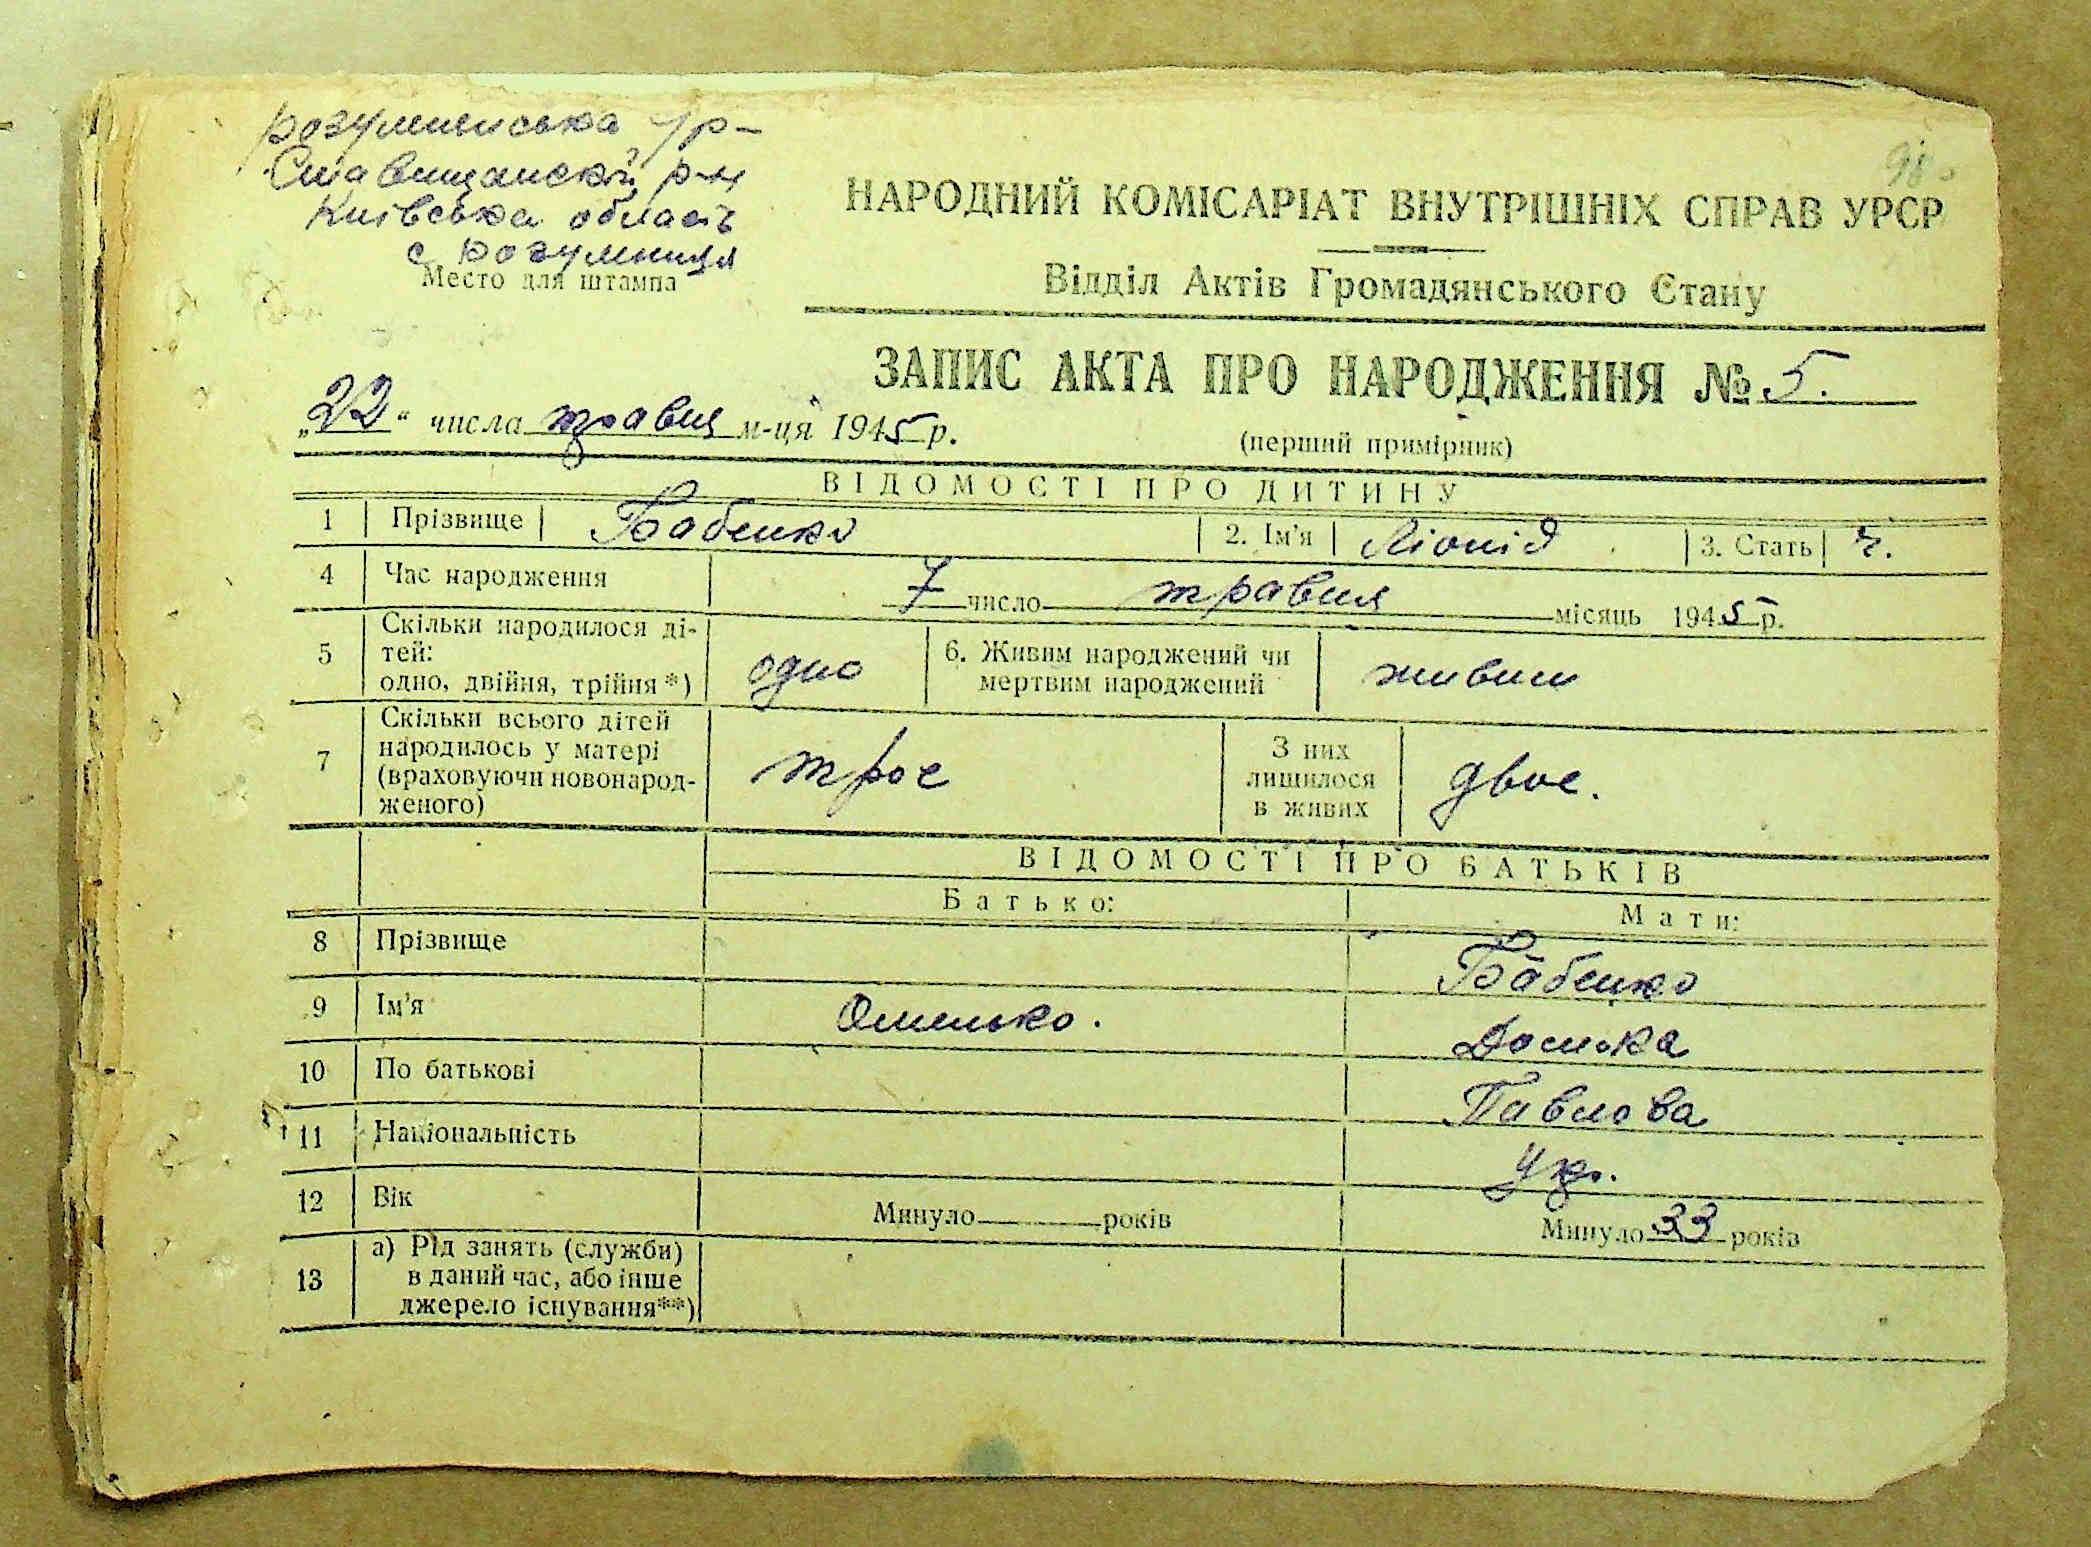 розумненська с/р-
Ставищанский р-н
Київська область
с Розумниця
Место для штампа
98
НАРОДНИЙ КОМІСАРІАТ ВНУТРІШНІХ СПРАВ УРСР
Відділ Актів Громадянського Стану
ЗАПИС АКТА ПРО НАРОДЖЕННЯ № 5.
„22“ числа травня м-ця 1945 р.
(перший примірник)
ВІДОМОСТІ ПРО ДИТИНУ
1 Прізвище Бабенко 2. Ім'я Ліонід 3. Стать ч.
4 Час народження 7 число травня місяць 1945 р.
5 Скільки народилося ді-
тей:
одно, двійня, трійня *) одно
6. Живим народжений чи
мертвим народжений живим
7 Скільки всього дітей
народилось у матері
(враховуючи новонарод-
женого) троє
З них
лишилося
в живих двоє.
ВІДОМОСТІ ПРО БАТЬКІВ
Батько: Мати:
8 Прізвище Бабенко
9 Ім'я Домька
10 По батькові Павлова
11 Національність Укр.
12 Вік Минуло років Минуло 33 років
13 а) Рід занять (служби)
в даний час, або інше
джерело існування**)